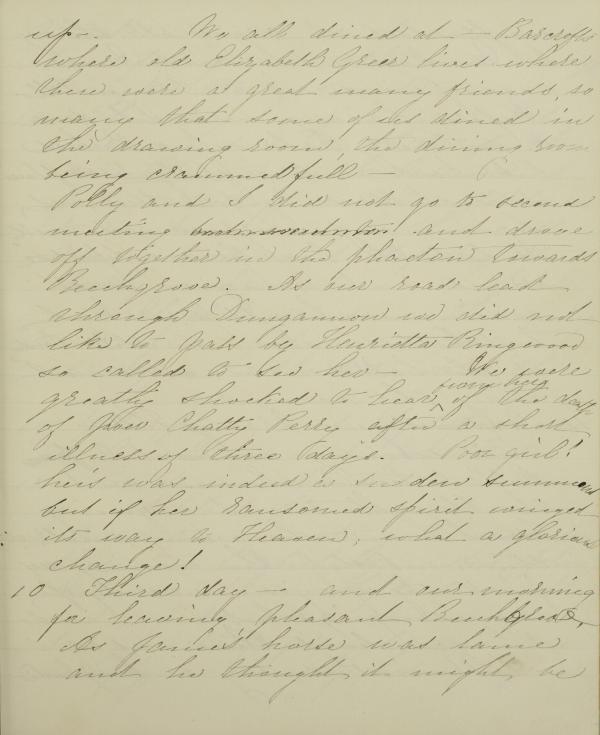 up-. We all dined at - Barcrofts
where old Elizabeth Greer lives where
there were a great many friends, so
many that some of us dined in
the drawing room, the dining room
being crammed full -
Polly and I did not go to second
meeting and drove
off together in the phaeton towards
Beechgrove. As our road lead
through Dungannon we did not
like to pass by Henrietta Ringwood
so called to see her - We were
greatly shocked to hear from her of the death
of poor Chatty Perry after a short
illness of three days. Poor girl!
hers was indeed a sudden summons
but if her ransomed spirit winged
its way to Heaven, what a glorious
change!
10 Third day - and our morning
for leaving pleasant Beechgrove,
As James' horse was lame
and he thought it might be